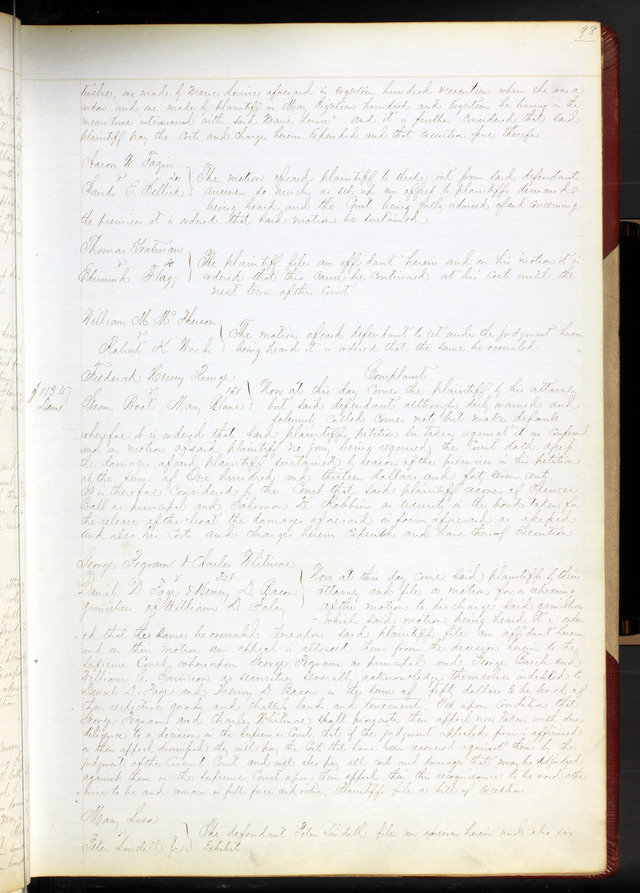 98
twelve, one made by Marie Louise aforesaid in Eighteen hundred & seventeen when she was a
widow and one made by plaintiff in May Eighteen hundred and Eighteen he having in the
mean time intermarried with said Marie Louise And it is further Considered that said
plaintiff pay the Costs and Charges herein Expended and that Execution issue therefor
Aaron W. Fagin
vs
E.
The motion aforesaid plaintiff to strike out from said defendants
answer so much as sets up an offset to plaintiffs demand
being heard and the Court being fully advised of and concerning
the premises it is ordered that said motion be sustained
Thomas
vs
Edmund Flagg
The plaintiff files an affidavit herein and on his motion it is
ordered that this cause be continued at his Costs until the
next term of this Court
William M. McPherson
vs
Robert K. Woods
The motion aforesaid defendant to set aside the judgment herein
being heard it is ordered that the same be overruled
Frederick Henry
vs 188
Steam Boat Mary Blane
Complaint
$113.47
Dam
Now at this day Come the plaintiff by his attorney
but said defendant although duly warned and
solemnly called comes not but makes default
wherefore it is ordered that said plaintiffs petition be taken against it as confessed
and on motion of said plaintiff no jury being required the Court doth assess
the damages aforesaid plaintiff sustained by reason of the premises in his petition
at the sum of One hundred and thirteen dollars and forty seven cents.
It is therefore Considered by the Court that said plaintiff recover of Spencer
Ball as principal and Solomon H. Robbins as security in the bond taken for
the release of the boat the damages aforesaid in form aforesaid as assessed
and also his Costs and Charges herein Expended and have thereof Execution
George Pegram & Charles Whitmore
vs
Daniel D. Page & Henry D. Bacon
garnishees of William L.
Now at this day come said plaintiffs by their
attorney and file a motion for a rehearing
of the motion to discharge said garnishees
which said motion being heard it is order
ed that the same be overruled thereupon said plaintiffs file an affidavit herein
and on their motion an appeal is allowed them from the decision herein to the
Supreme Court, whereupon George Pegram as principal and George and
William C. Jamison as securities severally acknowledge themselves indebted to
Daniel D. Page and Henry D. Bacon in the sum of fifty dollars to be levied of
their respective goods and chattels lands and tenements Yet upon Condition that
George Pegram and Charles Whitmore shall prosecute their appeal now taken with due
diligence to a decision in the Supreme Court, that if the judgment appealed from is affirmed
or their appeal dismissed they will pay the Costs that have been recovered against them by the
judgment of the Circuit Court and will also pay all costs and damages that may be adjudged
against them in the Supreme Court upon their appeal then this recognizance to be void other
wise to be and remain in full force and virtue, Plaintiffs file a bill of exceptions
Mary Lisa
vs
Peter Lindell Jr.
The defendant Peter Lindell files an answer herein and also six
Exhibits